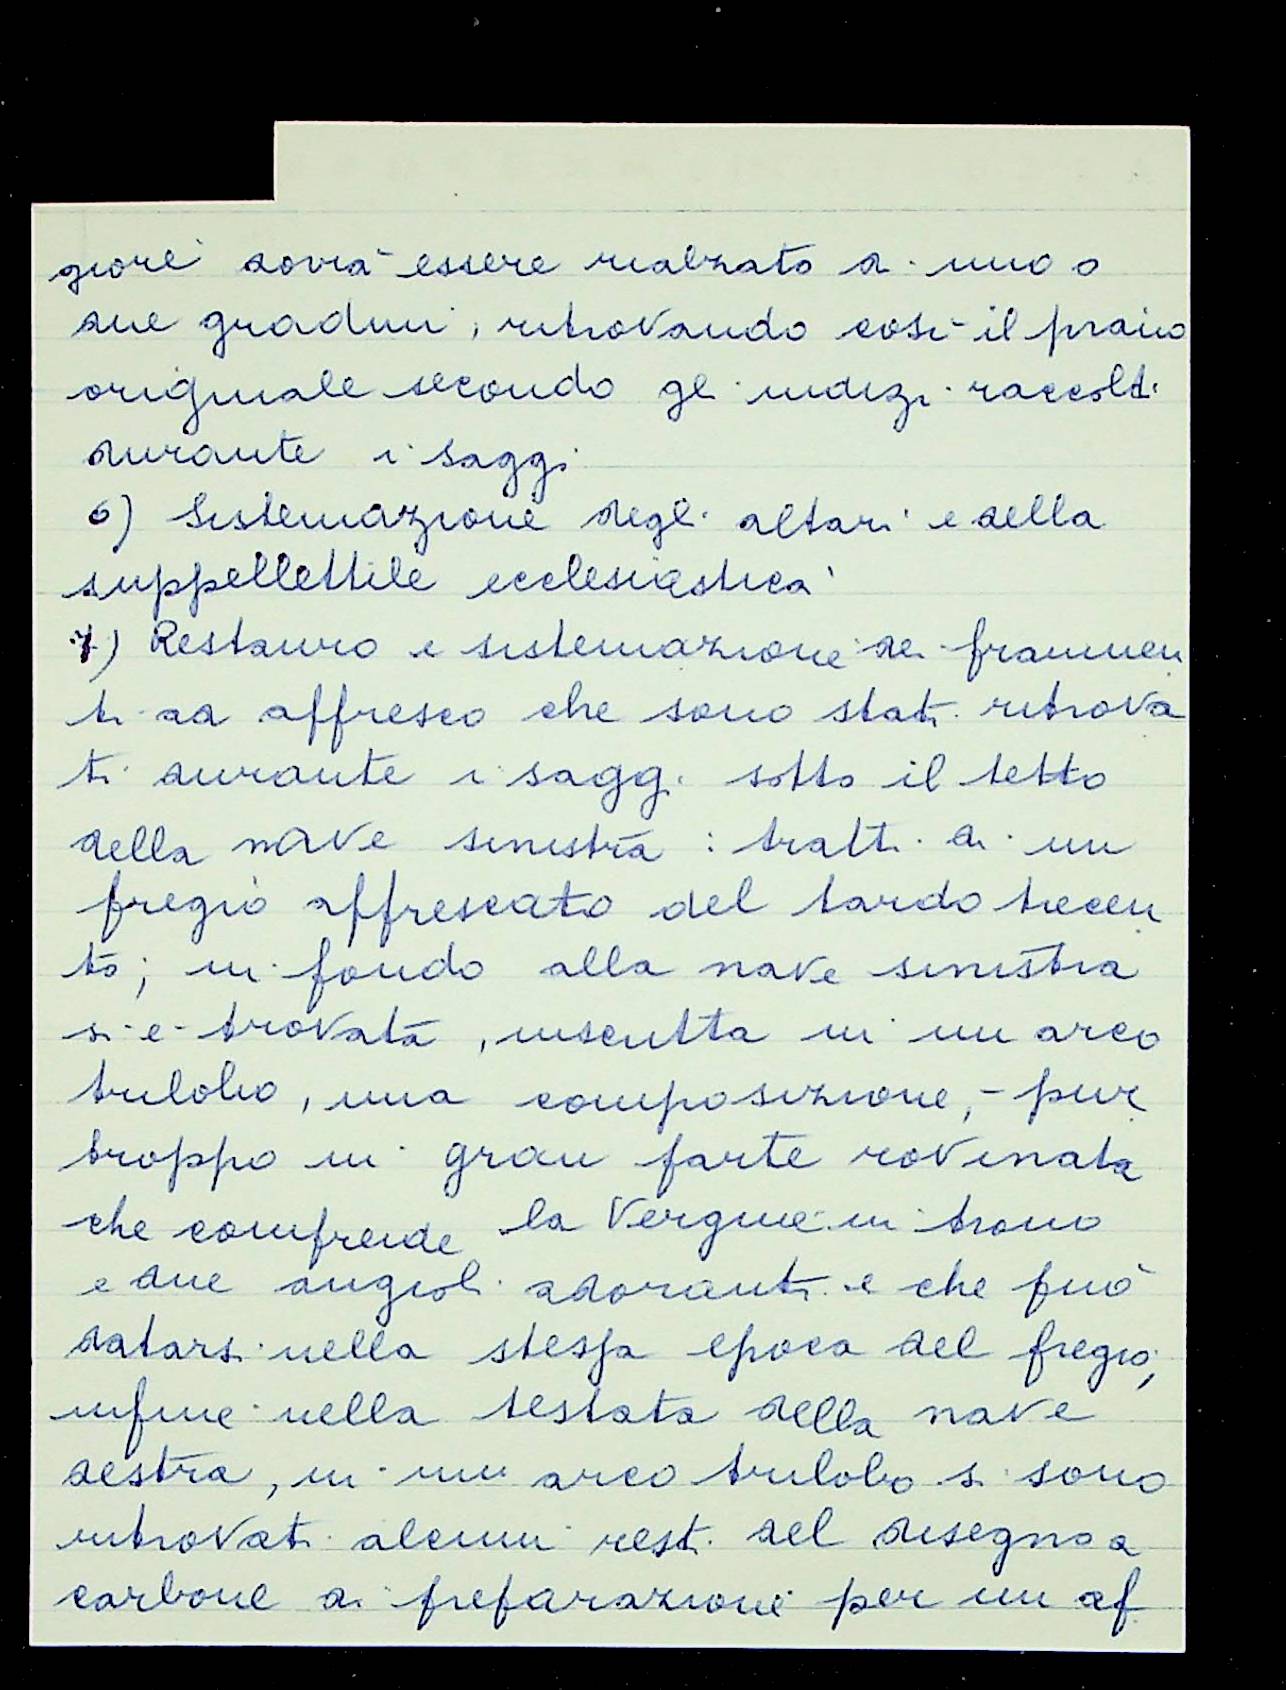 giore dovrà essere rialzato di uno o
due gradini, ritrovando così il piano
originale secondo gli indizi raccolti
durante i saggi
6) Sistemazione degli altari e della
suppellettile ecclesiastica
7) Restauro e sistemazione dei frammen
ti ad affresco che sono stati ritrova
ti durante i saggi sotto il tetto
della nave sinistra : tratti di un
fregio affrescato del tardo trecen
to; in fondo alla nave sinistra
si è trovata, inscritta in un arco
trilobo, una composizione, - pur
troppo in gran parte rovinata
che comprende la Vergine in trono
e due angioli adoranti e che può
datarsi nella stessa epoca del fregio;
infine nella testata della nave
destra, in un arco trilobo si sono
ritrovati alcuni resti del disegno a
carbone di preparazione per un af